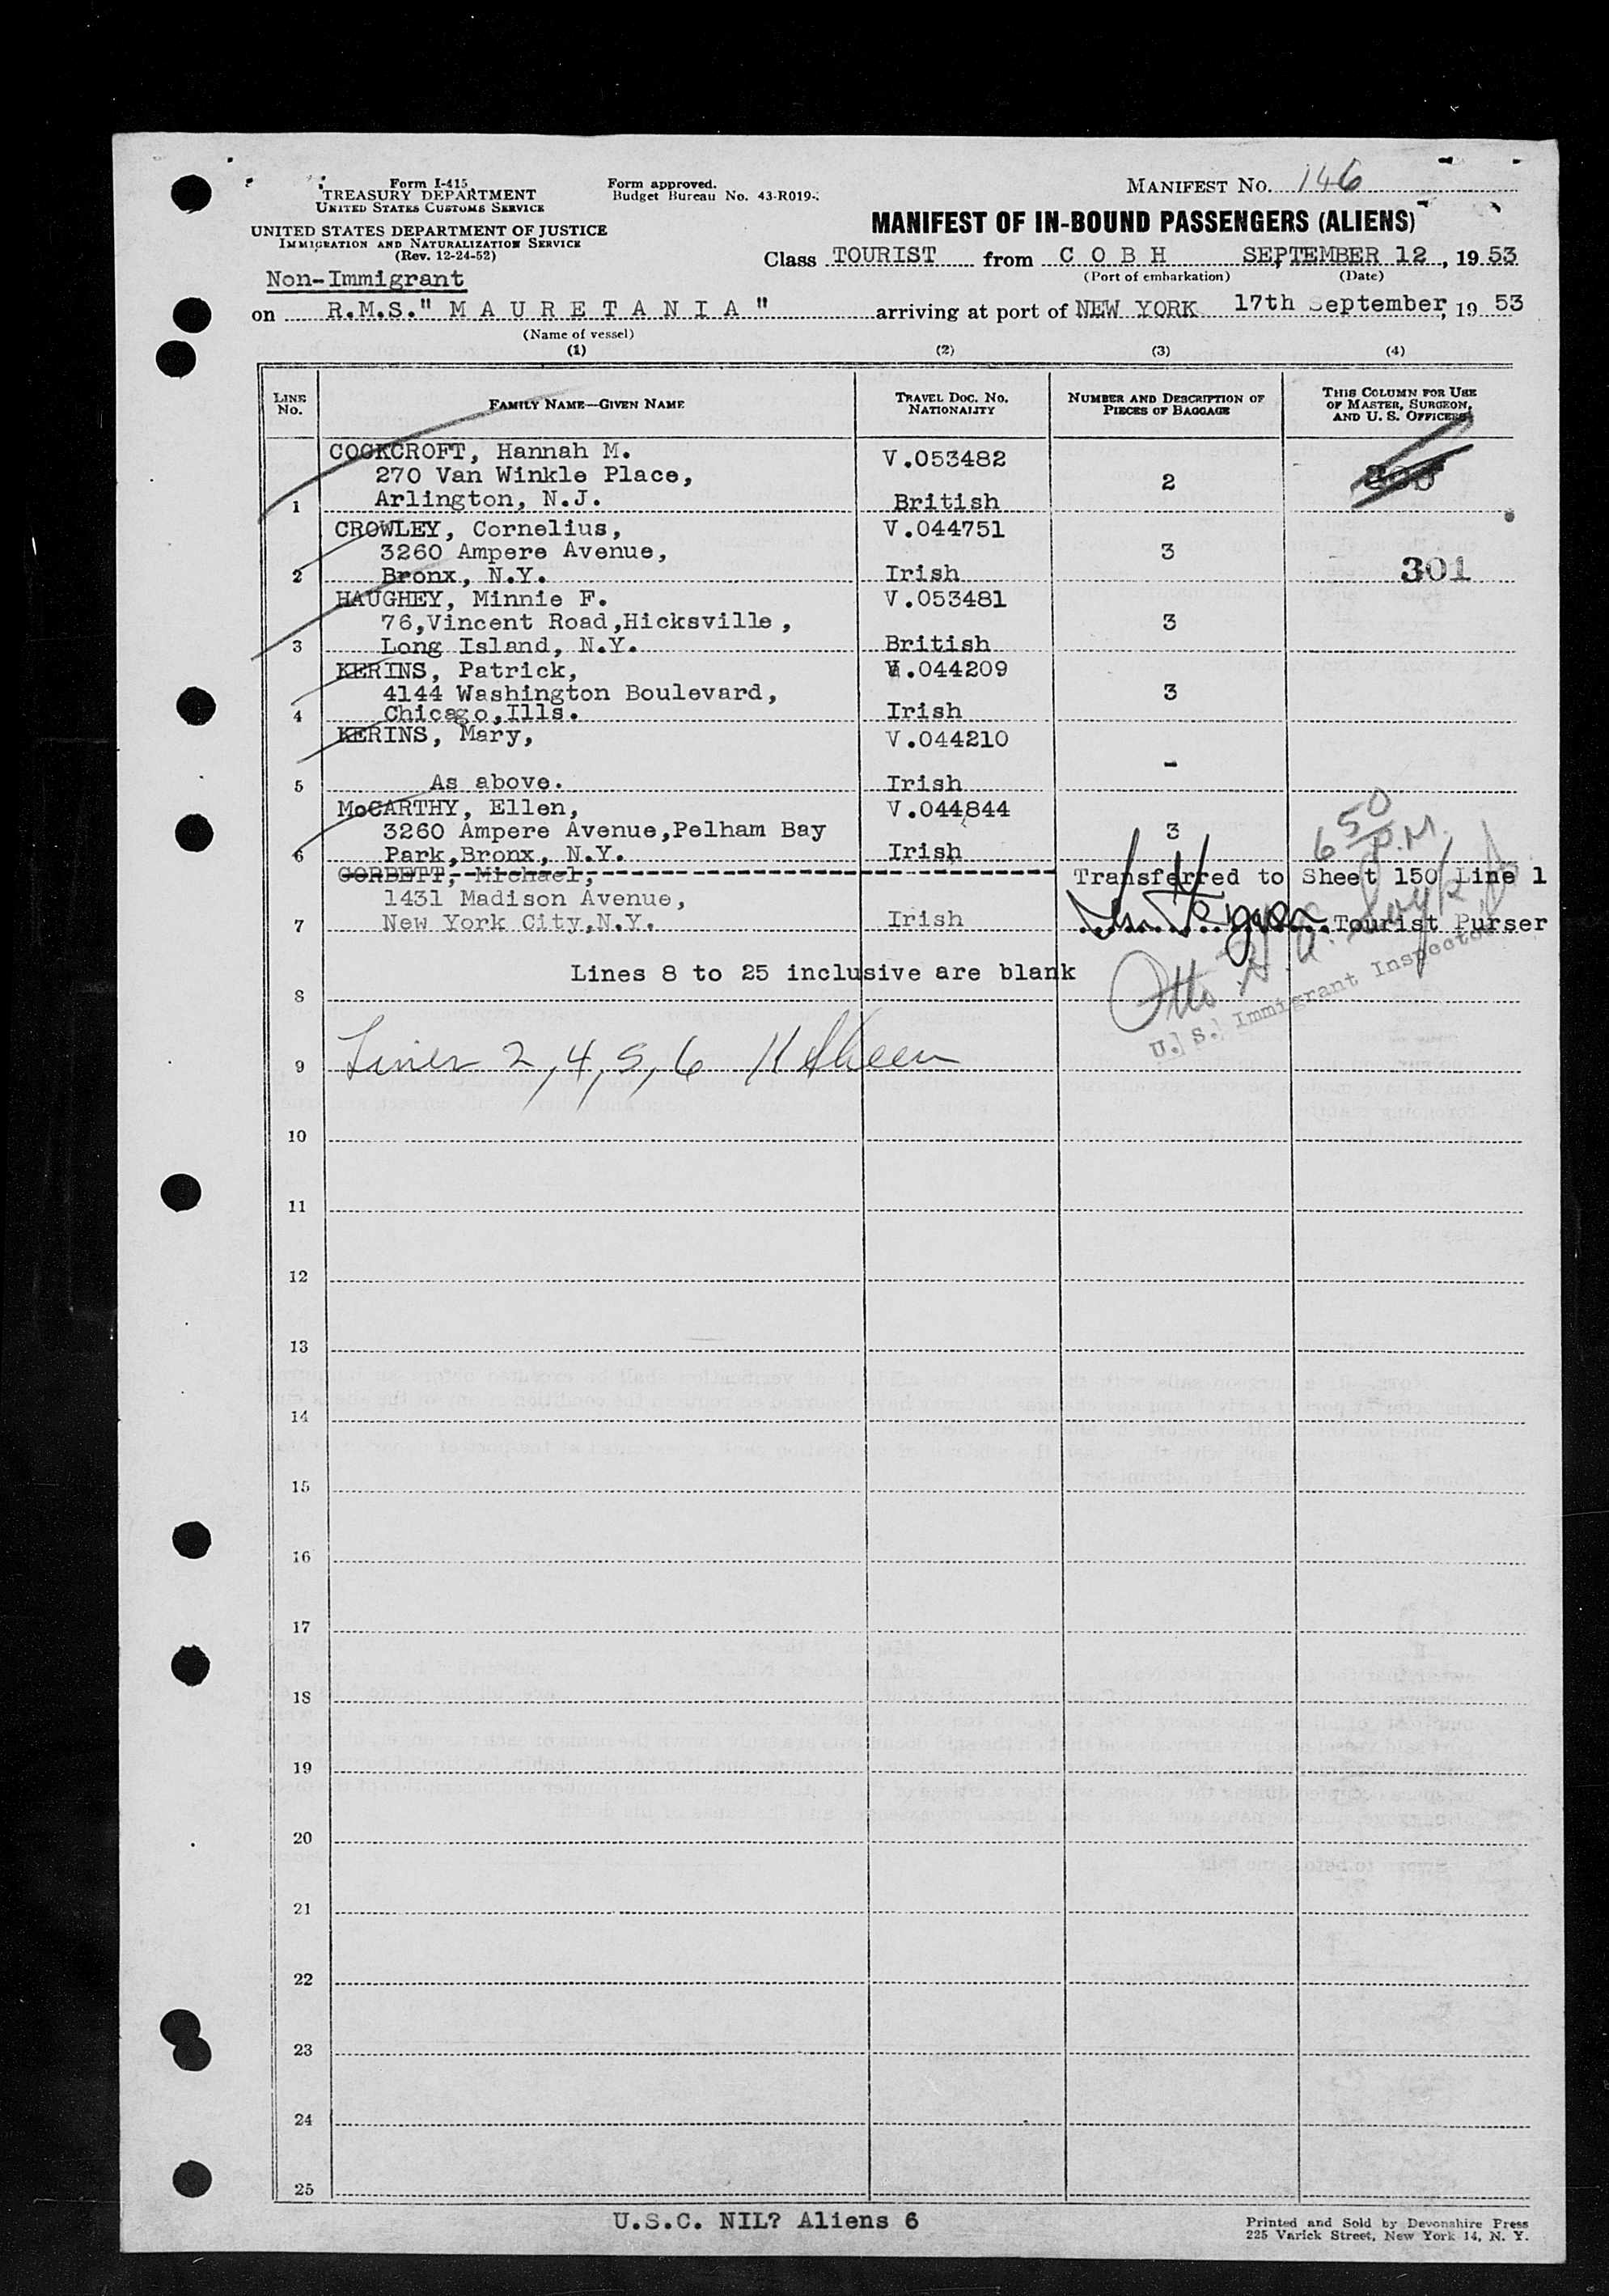 Form I-415
TREASURY DEPARTMENT
UNITED STATES CUSTOMS SERVICE
UNITED STATES DEPARTMENT OF JUSTICE
IMMIGRATION AND NATURALIZATION SERVICE
(Rev. 12-24-52)
Form approved.
Budget Bureau No. 43-R019-
MANIFEST NO. 146
MANIFEST OF IN-BOUND PASSENGERS (ALIENS)
Class TOURIST from C O B H SEPTEMBER 12, 1953
(Port of embarkation) (Date)
Non-Immigrant
on R.M.S." M A U R E T A N I A " arriving at port of NEW YORK 17th September, 19 53
(Name of vessel)
(1) (2) (3) (4)
LINE No. FAMILY NAME—GIVEN NAME TRAVEL DOC. NO. NATIONALITY NUMBER AND DESCRIPTION OF PIECES OF BAGGAGE THIS COLUMN FOR USE OF MASTER, SURGEON, AND U. S. OFFICERS
COCKCROFT, Hannah M. V.053482
270 Van Winkle Place, 2
1 Arlington, N.J. British
CROWLEY, Cornelius, V.044751
3260 Ampere Avenue, 3
2 Bronx, N.Y. Irish 301
HAUGHEY, Minnie F. V.053481
76,Vincent Road,Hicksville, 3
3 Long Island, N.Y. British
KERINS, Patrick, V.044209
4144 Washington Boulevard, 3
4 Chicago,Ills. Irish
KERINS, Mary, V.044210
-
5 As above. Irish
McCARTHY, Ellen, V.044844
3260 Ampere Avenue,Pelham Bay 3
6 Park,Bronx, N.Y. Irish
6 50 P.M.
CORBETT, Michael, Transferred to Sheet 150 Line 1
1431 Madison Avenue,
7 New York City,N.Y. Irish Tourist Purser
Lines 8 to 25 inclusive are blank
Otto
U. S. Immigrant Inspector
8
9 Lines 2, 4, 5, 6
10
11
12
13
14
15
16
17
18
19
20
21
22
23
24
25
U.S.C. NIL? Aliens 6
Printed and Sold by Devonshire Press
225 Varick Street, New York 14, N. Y.